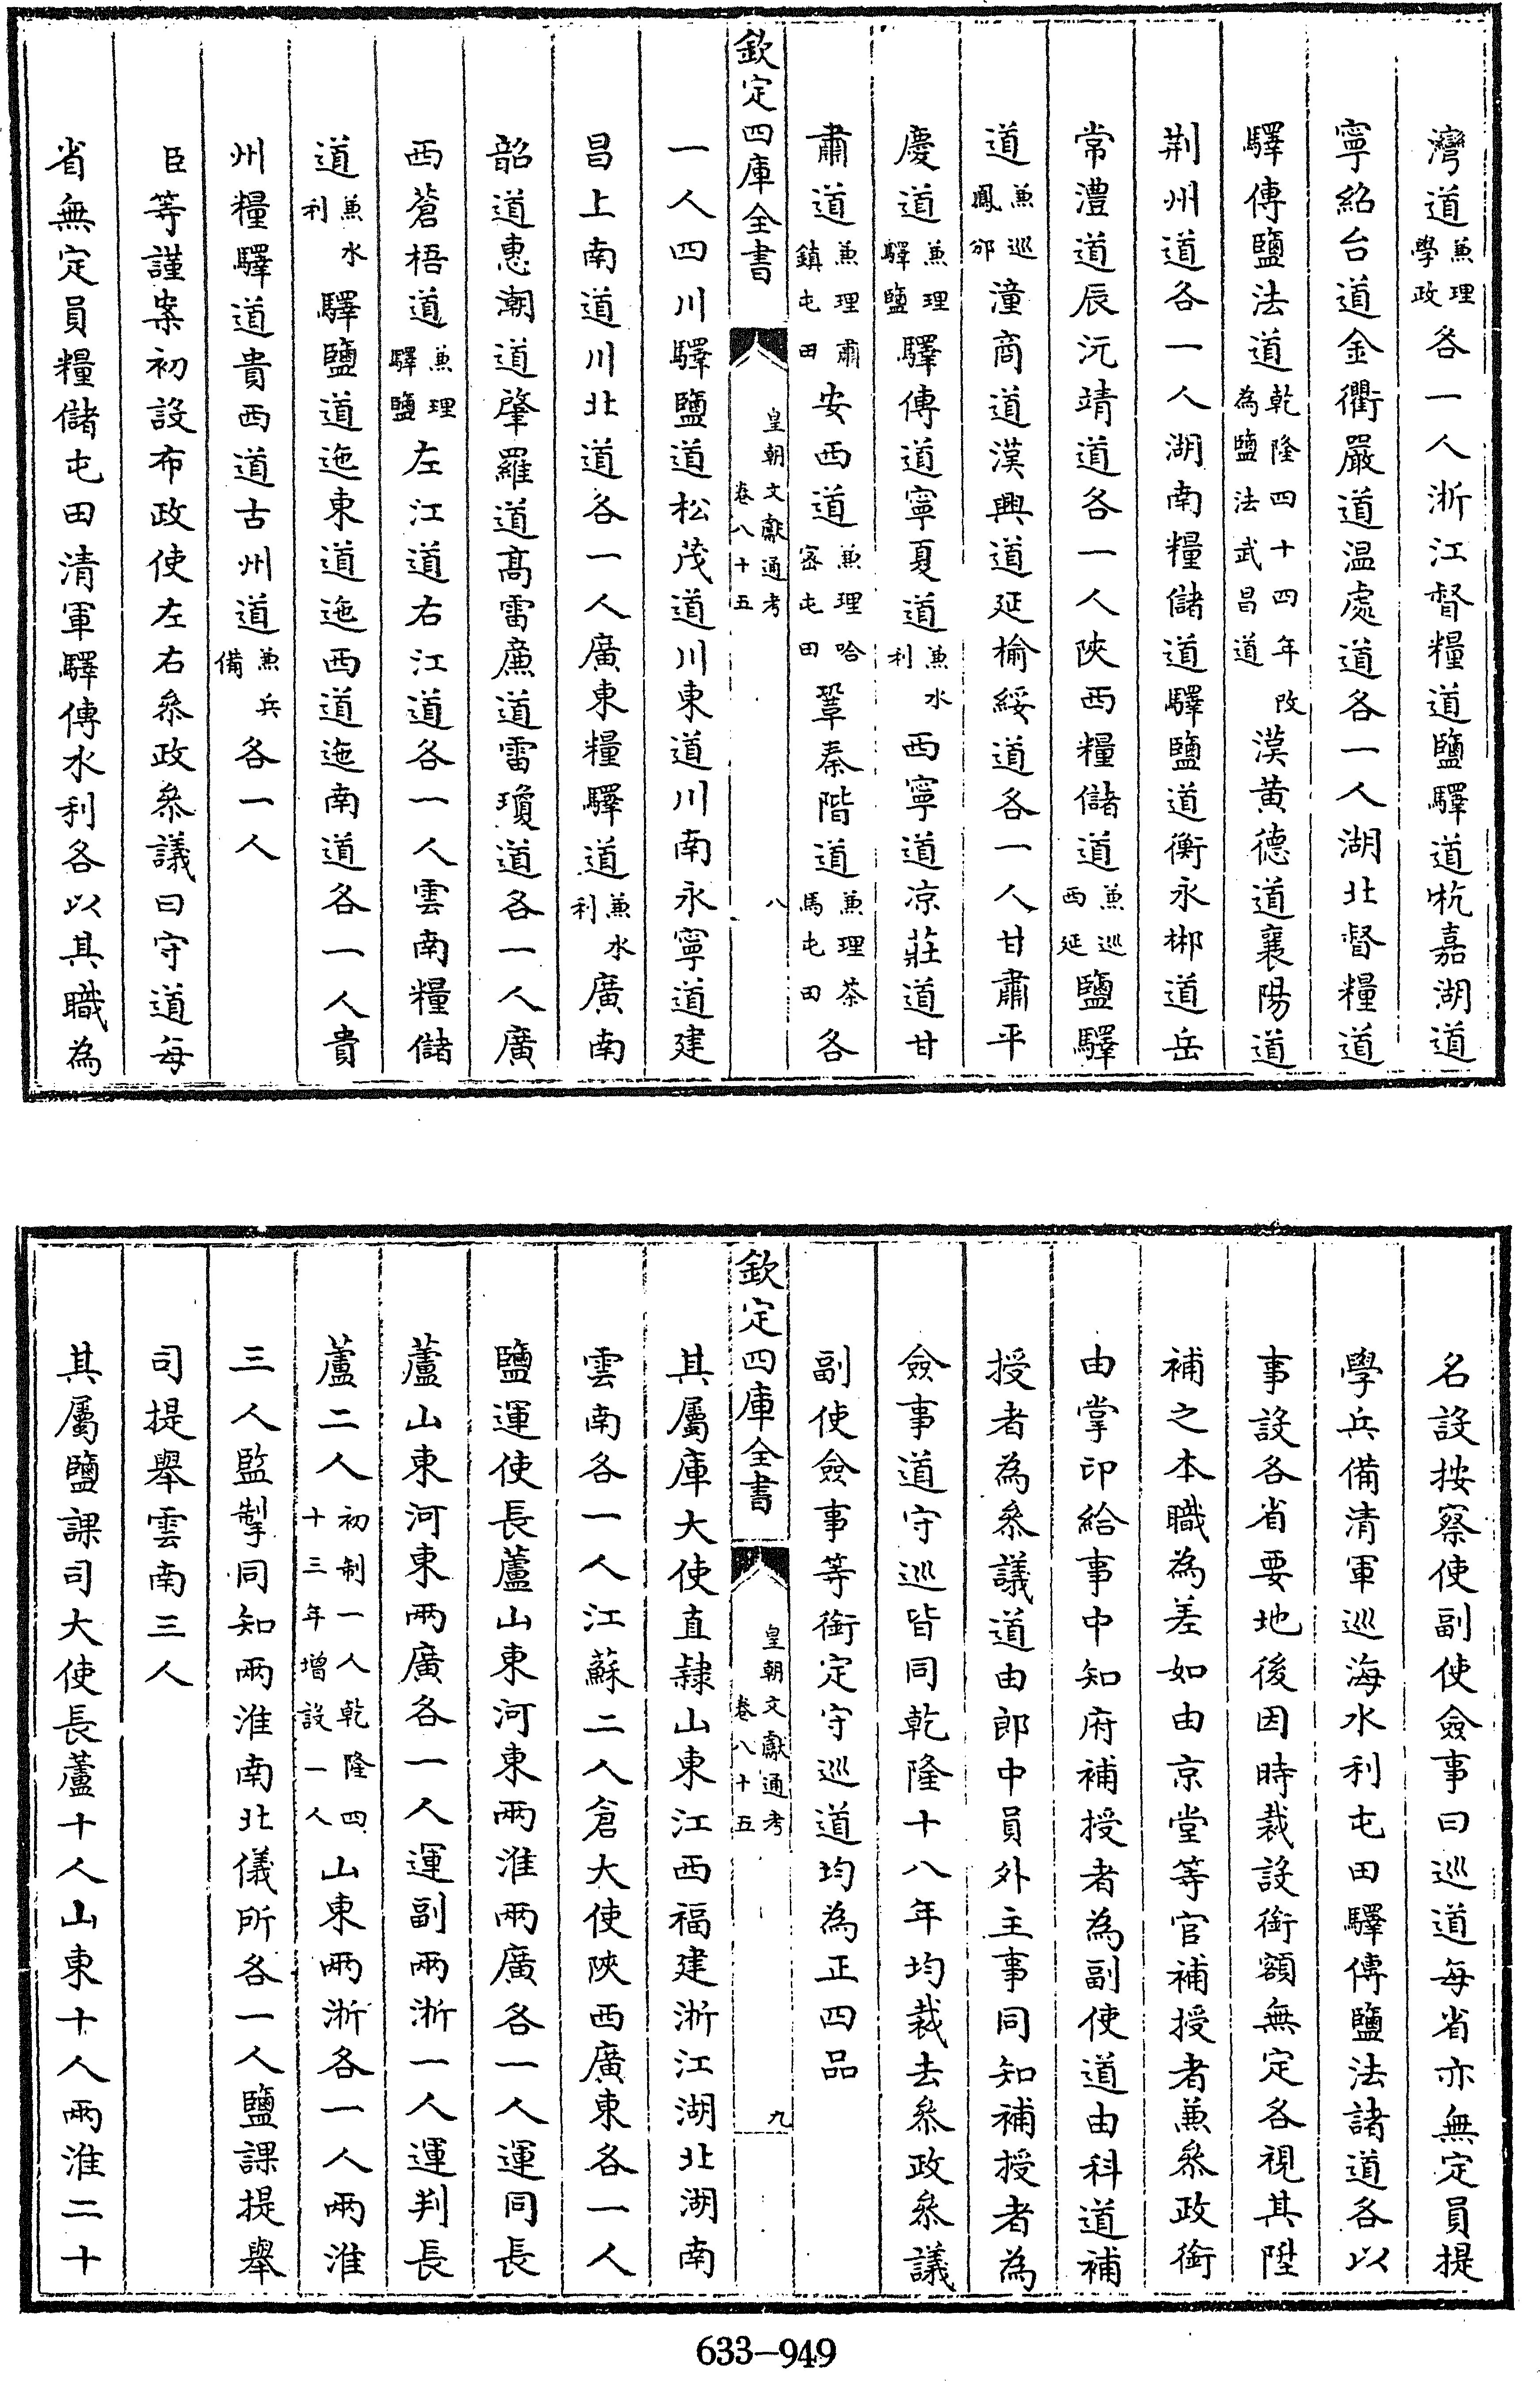 灣道兼理學政各一人浙江督糧道鹽驛道杭嘉湖道
寧紹台道金衢嚴道温處道各一人湖北督糧道
驛傳鹽法道乾隆四十四年改為鹽法武昌道漢黄德道襄陽道
荆州道各一人湖南糧儲道驛鹽道衡永郴道岳
常澧道辰沅靖道各一人陜西糧儲道兼巡西延鹽驛
道兼巡鳳邠潼商道漢興道延榆綏道各一人甘肅平
慶道兼理驛鹽驛傳道寧夏道兼水利西寧道凉莊道甘
肅道兼理肅鎮屯田安西道兼理哈密屯田鞏秦階道兼理茶馬屯田各
欽定四庫全書
皇朝文獻通考
卷八十五
八
一人四川驛鹽道松茂道川東道川南永寧道建
昌上南道川北道各一人廣東糧驛道兼水利廣南
韶道惠潮道肇羅道高雷廉道雷瓊道各一人廣
西蒼梧道兼理驛鹽左江道右江道各一人雲南糧儲
道兼水利驛鹽道迤東道迤西道迤南道各一人貴
州糧驛道貴西道古州道兼兵備各一人
臣等謹案初設布政使左右叅政叅議曰守道每
省無定員糧儲屯田清軍驛傳水利各以其職為
名設按察使副使僉事曰巡道每省亦無定員提
學兵備清軍巡海水利屯田驛傳鹽法諸道各以
事設各省要地後因時裁設銜額無定各視其陞
補之本職為差如由京堂等官補授者兼叅政銜
由掌印給事中知府補授者為副使道由科道補
授者為叅議道由郎中員外主事同知補授者為
僉事道守巡皆同乾隆十八年均裁去叅政叅議
副使僉事等銜定守巡道均為正四品
欽定四庫全書
皇朝文獻通考
卷八十五
九
其屬庫大使直隸山東江西福建浙江湖北湖南
雲南各一人江蘇二人倉大使陜西廣東各一人
鹽運使長蘆山東河東兩淮兩廣各一人運同長
蘆山東河東兩廣各一人運副兩浙一人運判長
蘆二人初制一人乾隆四十三年增設一人山東兩浙各一人兩淮
三人監掣同知兩淮南北儀所各一人鹽課提舉
司提舉雲南三人
其屬鹽課司大使長蘆十人山東十人兩淮二十
633-949